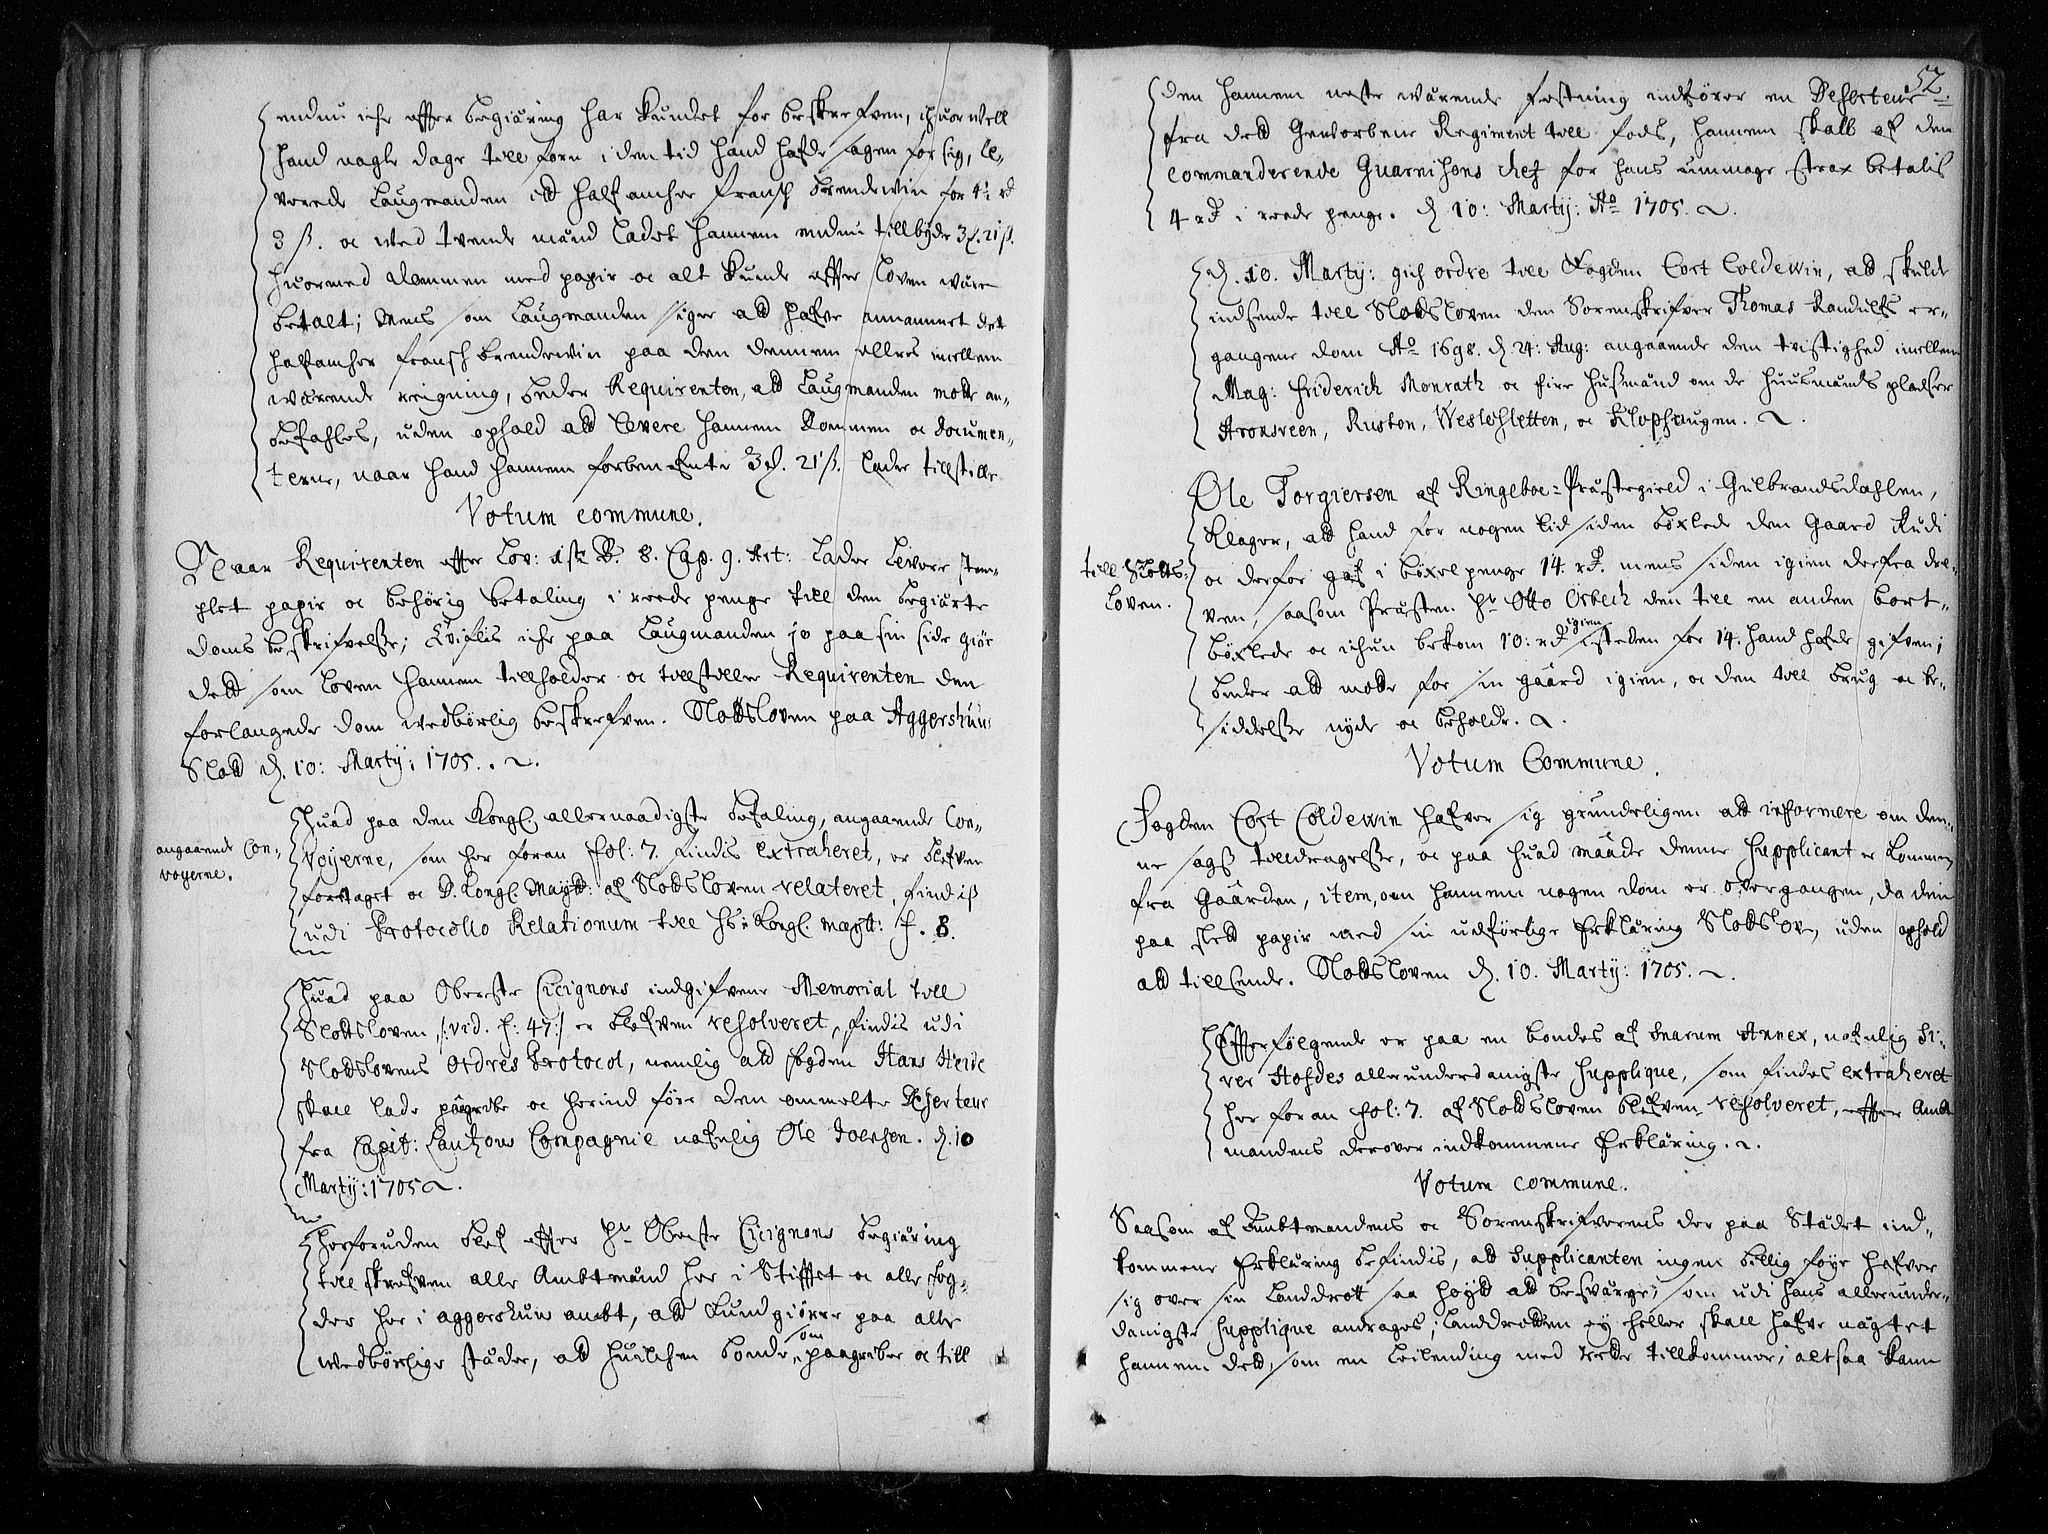 endnu iche effter begiæring har kundet for beskrefven, ihuorvell
hand nogle dage till forn i den tid hand hafde sagen for sig, le-
verede Laugmanden itt half ancher fransk brendevin for 4½ rd
3 ß. oc ved tvende mænd ladet hannem endnu tillbyde 3 f. 21 ß.
huormed dommen med papir oc alt kunde effter loven være
betalt; Mens som Laugmanden siger att hafve annammet det
halfancher fransk brendevin paa den dennem ellers imellem
værende reigning, beder Requirenten, att Laugmanden motte an-
befahles, uden ophold att levere hannem Dommen oc documen-
terne, naar hand hannem forben.te 3 f. 21 ß. lader tillstille
Votum commune.
Naar Requirenten effter Lov: 1ste B. 8. Cap. 9. Art: lader levere stem-
plet papir oc behörig betaling i reede penge till den begiærte
doms beskrifvelse; tviflis iche paa Laugmanden jo paa sin side giör
dett som loven hannem tillholder oc tillstiller Requirenten den
forlangede dom vedbörlig beskrefven. Slottsloven paa Aggershuus
Slott d. 10: Martij: 1705.
angaaende Con-
voyerne.
Huad paa den Kongl allernaadigste befaling, angaaende Con-
voyerne, som her foran fol: 7. findis extraheret, er blefven
forretaget oc D. Kongl Mayt: af Slottsloven relateret, findiß
udi Protocollo Relationum till Hs: Kongl. Mayt: f. 8.
Huad paa Oberste Cicignons indgifvene Memorial till
Slottsloven /: vid. f: 47:/ er blefven resolveret, findis udi
Slottslovens Ordres Protocol, nemlig att fogden Hans Heide
skall lade paagribe oc herind före den ommelte Deserteur
fra Capit: Lautzow Compagnie nafnlig Ole Joensen. d. 10
Martij: 1705.
Herforuden blef effter Hr Oberste Cicignons begiæring
till skrefven alle Ambtmænd her i Stifftet oc alle fog-
der her i aggershuus ambt, att kundgiörre paa alle
vedbörlige stæder, att huilchen bonde, som paagriber oc till
52.
den hannem neste værende festning indförer en Deserteur
fra dett Gevorbene Regiment till fods, hannem skall af den
commanderende Guarnisons chef for hans ummage strax betalis
4 rd i reede penge. d 10: Martij: Ao 1705.
d. 10. Martij: gich ordre till fogden Cort Coldewin, att skulde
indsende till Slottsloven den Sorenskrifver Thomas Randulfs er-
gangene dom Ao 1698. d. 24: Aug: angaaende den tvistighed imellem
Mag: Friderich Monrath oc fire Husmænd om de huusmands pladser
Aronsveen, Ruston, Westesletten, oc Klophaugen.
till Slotts-
loven.
Ole Torgiersen af Ringeboe-Præstegield i Gulbrandsdahlen,
klager, att hand for nogen tid siden böxlede den Gaard Rudi
oc derfor gaf i böxelpenge 14. rd. mens siden igien derfra dre-
ven, saasom Præsten Hr Otto Örbech den till en anden bort-
böxlede oc ichun bekom 10: rd igien isteden for 14. hand hafde gifven;
beder att motte for sin gaard igien, oc den till brug oc be-
siddelse nyde oc beholde.
Votum Commune.
Fogden Cort Coldewin hafver sig grundeligen att informere om den-
ne sags tilldragelse, oc paa huad maade denne Supplicant er kommen
fra Gaarden, item, om hannem nogen dom er overgangen, da den
paa slett papir med sin udförlige Erklæring Slottslov, uden ophold
att tillsende. Slottsloven d. 10. Martij: 1705.
Effterfölgende er paa en bondes af Snarum Annex, nafnlig Si-
ver Hofdes allerunderdanigste Supplique, som findes extraheret
her foran fol: 7. af Slottsloven blefven resolveret, effter Ambt
mandens derover indkommene Erklæring.
Votum commune.
Saasom af Ambtmandens oc Sorenskrifverens der paa Stædet ind-
kommene Erklæring befindis, att Supplicanten ingen billig föye hafver
sig over sin Landdrott saa höyt att besværge, som udi hans allerunder-
danigste Supplique andrages; Landdrotten ey heller skall hafve nægtet
hannem dett, som en leilending med rette tillkommer; altsaa kand